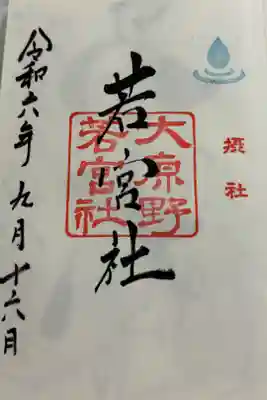 摂社
大原野
若宮社
若宮社
令和六年九月十六日